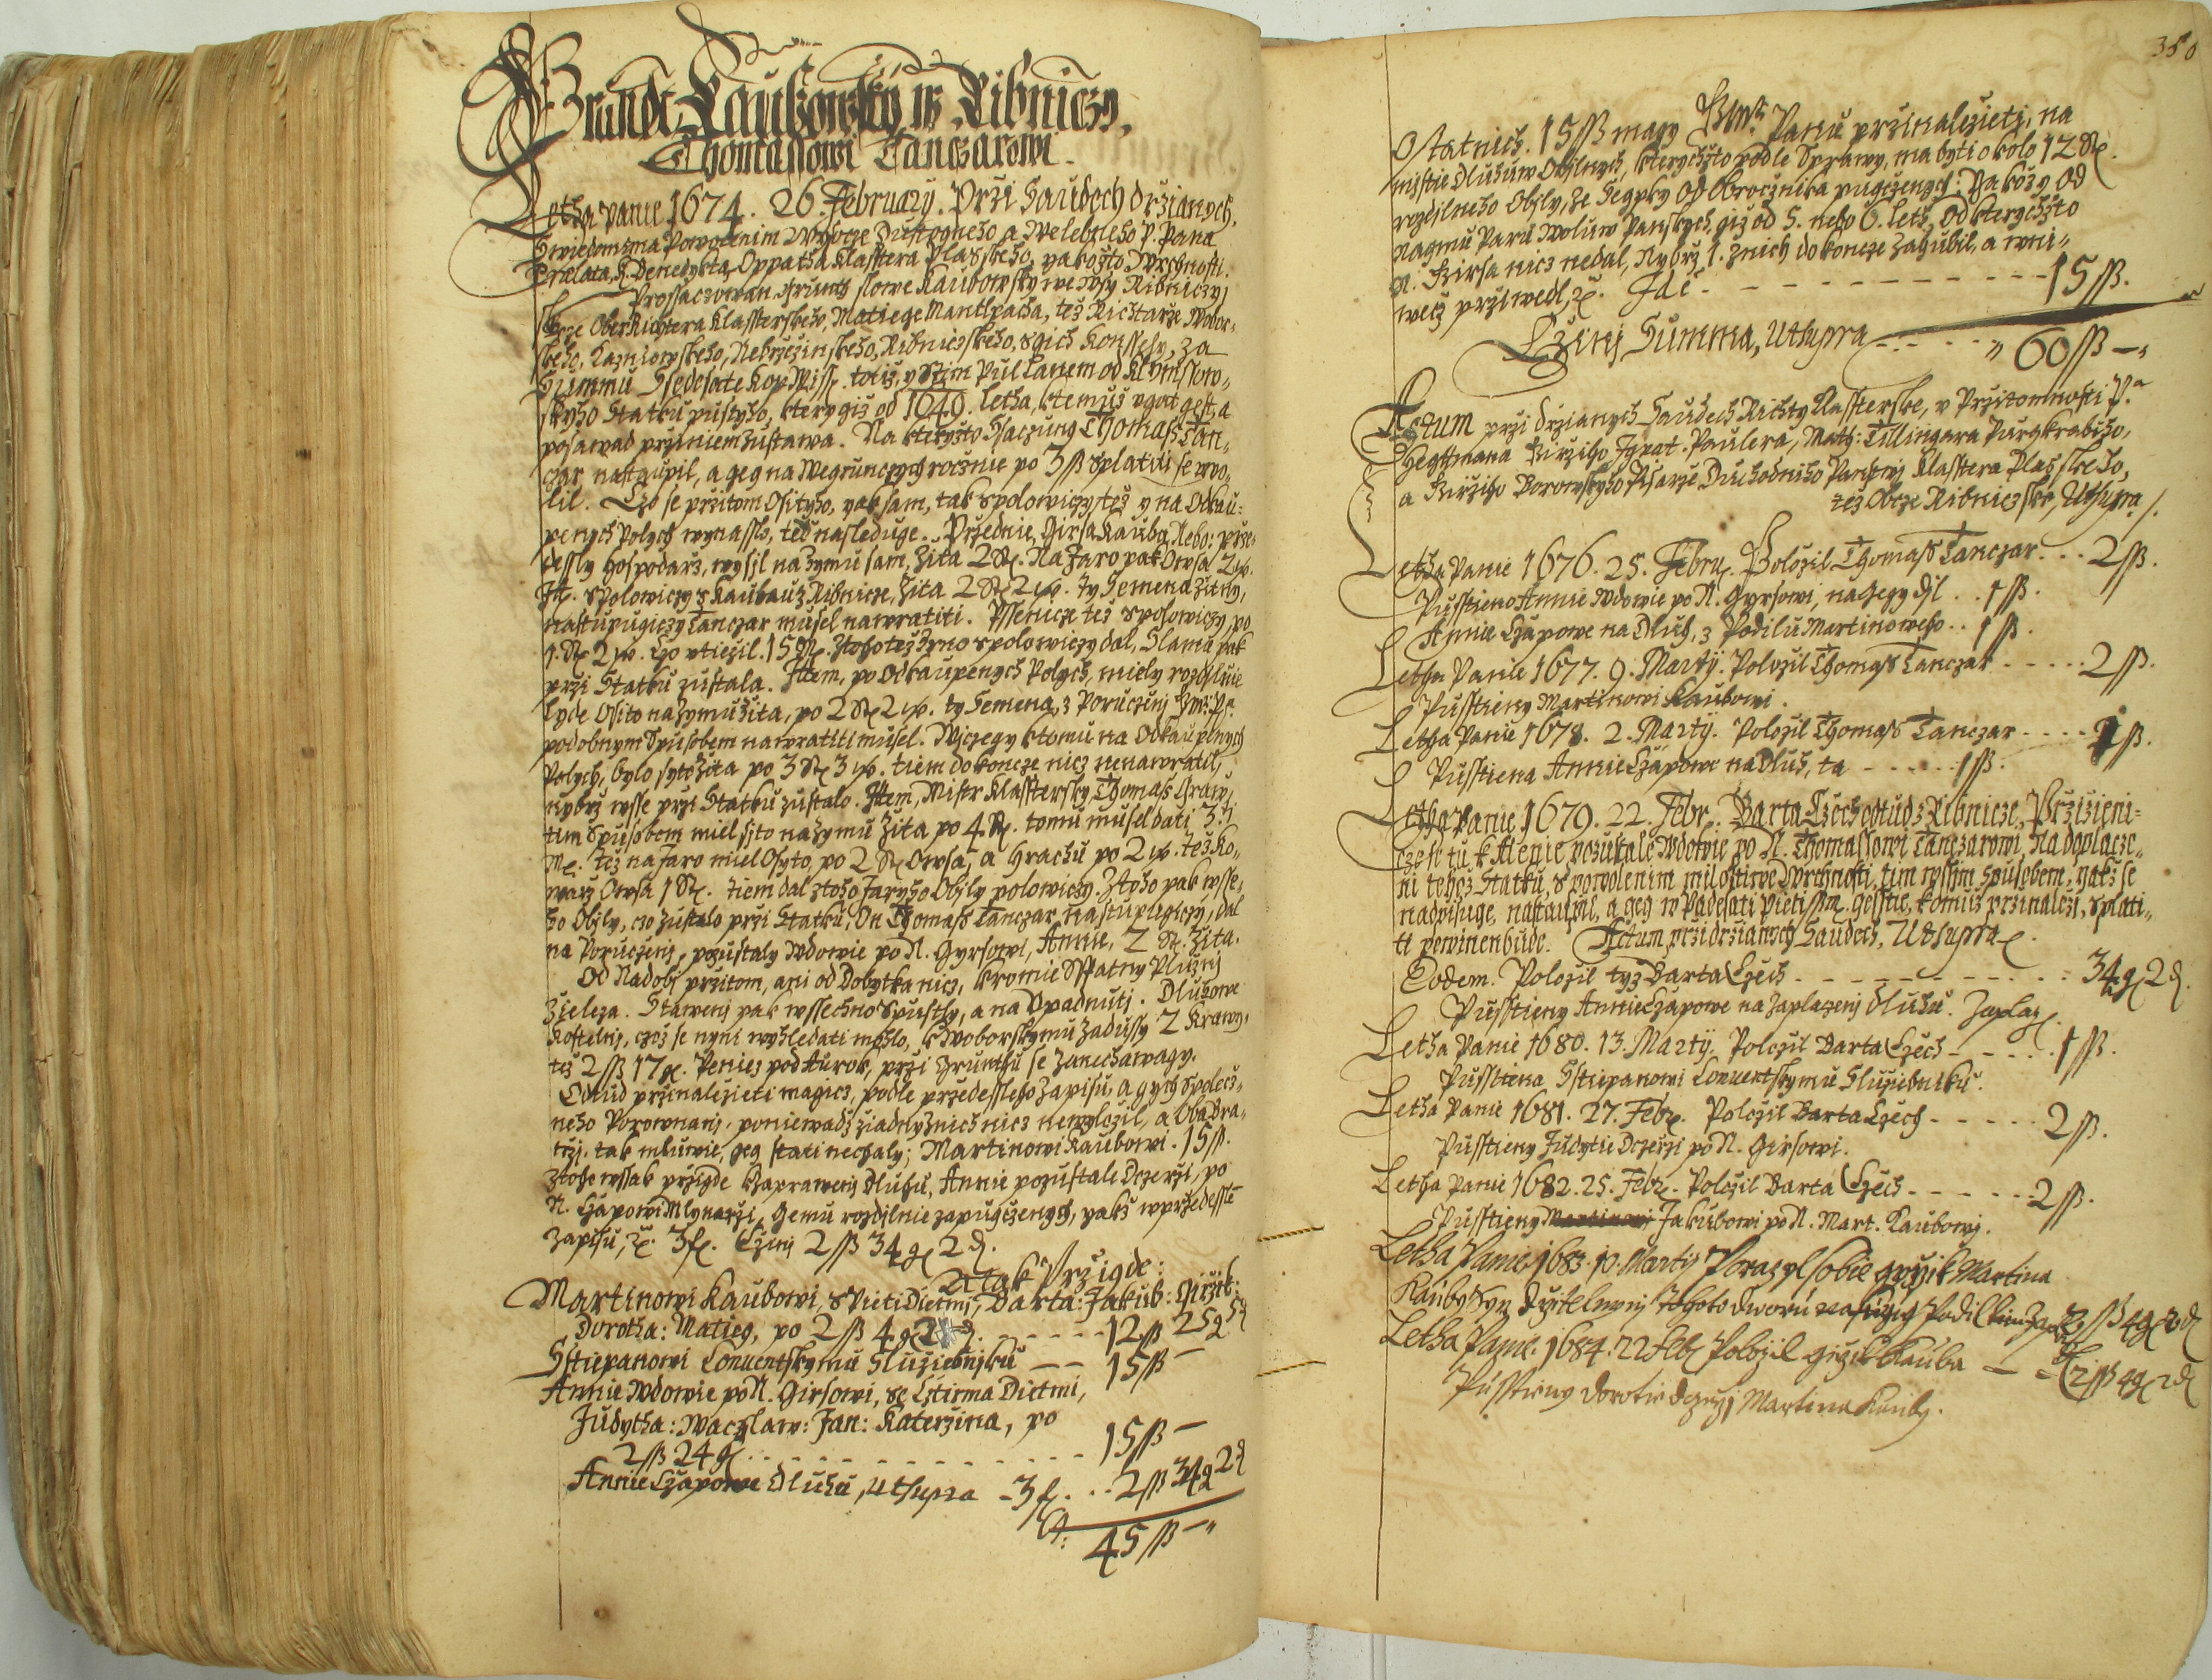 Grundt Kaubowsky w Ribniczy,
Thomassowi Tanczarowi.
Letha Panie 1674. 26. February. Przi Saudech drzianych,
Swiedomim a Powolenim Wysocze Dustogneho a Welebneho P. Pana
Prelata, K. Benedykta Oppatha Klasstera Plasskeho, yakozto Wrchnosti.
Prossaczowan Gruntt slowe Kaubowsky we Wsy Ribniczy,
skrze OberRichtera Klassterskeho, Matiege Mantlpacha, tez Richtarze Wobor-
skeho, Kazniowskeho, Nebrzezinskeho, Ribniczskeho, s gich Konssely, za
Summu Ssedesate Kop Miss. totiz, y s tim Pul Lanem od Klymssow-
skyho Statku pustyho, ktery giz od 1640. letha, k temuz ugat gest, a
posawad przi niem zustawa. Na kteryzto Ssaczung Thomass Tan-
czar nastaupil, a geg na Wegrunczych rocznie po 3 ß splatiti se uwo-
lil. Czo se przitom Osityho, yak sam, tak spolowiczy tez y na Odkau-
penych Polych wynasslo, ted nasleduge. Przednie, Girsa Kauba, Neb: prze-
dessly Hospodarz, wysil na Zymu sam, Zita 2 St. Na Jaro pak Owsa 2 w.
It. spolowiczy s Kaubau z Ribnicze, Zita 2 St 2 w. Ty Semena Zitny,
nastupugiczy Tanczar musel nawratiti. Pssenicze tez spolowiczy, po
1. St 2 w. Czo utiezil 15 St. z toho tez Zrno spolowiczy dal, Slama pak
przi Statku zustala. Item, po Odkaupenych Polych, miely rozdilnie
Lyde Osito na Zymu Zita, po 2 St 2 w. ty Semena, z Poruczenj
podobnym Spusobem nawratiti musel. Wiczegy k tomu na Odkaupenych
Polych, bylo syto Zita po 3 St 3 w. tiem dokoncze nicz nenawratil,
nybrz wsse przi Statku zustalo. Item, Mistr Klasstersky Thomass
tim Spusobem miel sito na Zymu Zita po 4 St. tomu musel dati 3. ti
tez na Jaro miel Osyto, po 2 St Owsa, a Hrachu po 2 w. tez Ko-
warz Owsa 1 St. tiem dal z toho Jaryho Obily polowiczy. Z toho pak wsse-
ho Obily, czo zustalo przi Statku, On Thomass Tanczar nastupugiczy, dal
na Poruczenj, pozustaly Wdowie po N. Gyrsowi, Annie, 2 St. Zita.
Od Nadobj przitom, ani od Dobytka nicz, kromie Sspatny Pluznj
Zieleza. Stawenj pak wssechno Spustly, a na Upadnuti. Dluhowe
Kostelnj, czoz se nyni wyhledati mohlo, k Woborskymu Zadussy 2 Krawy,
tez 2 ß 17 g. Peniez pod Aurok, przi Grunthu se zanechawagy.
Odtud przinalezieti magicz, podle przedesslyho Zapisu, a gych Spolecz-
neho Porownanj, poniewadz ziadny z nich nicz newylozil, a Oba Bra-
trzj, tak mluwie, geg stati nechaly; Martinowi Kaubowi. 15 ß.
z toho wssak przigde k Zaprawenj Dluhu, Annie pozustale Dczerzi, po
N. Czapowi Mlynarzi, gemu rozdilnie zapugczenych, yakz w przedessle
Zapisu, 3 f. Czinj 2 ß 34 g 2 d.
A tak Przigde:
Martinowi Kaubowi, s Pieti Dietmi, Barta: Jakub: Girzik:
Dorotha: Matieg, po 2 ß 4 g - - - - - 12 ß 25 g 5 d
Sstiepanowi Conventskymu Sluziebniku - - 15 ß -
Annie Wdowie po N. Girsowi, se Cztirma Dietmi,
Judytha: Waczlaw: Jan: Katerzina, po
2 ß 24 g - - - - - - - - - 15 ß -
Annie Czapowe Dluhu, ut supra - 3 f. . . 2 ß 34 g 2 d
45 ß -
350
Ostatnich. 15 ß magy Panu przinalezieti, na
mistie Dluhuw Obilnych, kterychzto podle Sprawy, ma byti okolo 12 St.
rozdilneho Obily, ze Segpky od Obrocznika pugczenych: Yakozy od
nagmu Paru Woluw Panskych, giz od 5. nebo 6. Leth, od kterychzto
N. Girsa nicz nedal, Nybrz 1. z nich dokoncze zahubil, a wni-
wecz prziwedl, Id e - - - - - - - - - 15 ß.
Czinj Summa, Ut supra - - - - - 60 ß -
Actum przi drzianych Saudech Richty Klassterske, v Przitomnosti P.
Hegttmana Girziho Ignat. Paulera, Math: Tillingara Purgkrabiho,
a Girziho Borowskyho Pisarze Duchodniho Panstwj Klasstera Plasskeho,
tez Obcze Ribniczske, Ut supra.
Letha Panie 1676. 25. Febru. Polozil Thomass Tanczar . . . 2 ß.
Pusstieno Annie Wdowie po N. Gyrsowi, na Gegy djl . . 1 ß.
Annie Czapowe na Dluh, z Podilu Martinoweho . . 1 ß.
Letha Panie 1677. 9. Martij. Polozil Thomass Tanczar - - - - - 2 ß.
Pusstieny Martinowi Kaubowi.
Letha Panie 1678. 2. Martij. Polozil Thomass Tanczar - - - - 1 ß.
Pusstiena Annie Czapowe na Dluh, ta - - - - - 1 ß.
Letha Panie 1679. 22. Febr. Barta Czech odtud z Ribnicze, Prziziení-
cze se tu, k Alenie pozustale Wdowie po N. Thomassowi Tanczarowi, Na doplacze-
ni tehoz Statku, s powolenim milostiwe Wrchnosti, tim wssim Spusobem, yakz se
nadpisuge, nastaupil, a geg w Padesati Pieti ß m. gesstie, komuz przinalezi, splati-
ti powinen bude. Actum przi drzianych Saudech, Ut supra.
Eodem. Polozil tyz Barta Czech - - - - - - - - - - 34 g 2 d.
Pusstieny Annie Czapowe na Zaplacenj Dluhu. Zaplac.
Letha Panie 1680. 13. Martij. Polozil Barta Czech - - - - - 1 ß.
Pusstiena Sstiepanowi Conventskymu Sluziebniku.
Letha Panie 1681. 27. Febr. Polozil Barta Czech - - - - - 2 ß.
Pusstieny Judytie Dczerzi po N. Girsowi.
Letha Panie 1682. 25. Febr. Polozil Barta Czech - - - - - - 2 ß.
Pusstieny Martinowi Jakubowi po N. Mart. Kaubowj.
Letha Panie 1683. 10. Martij Porazyl sobie girzik Martina
Kauby Syn Drzitelnynj tohoto dworu na swug Podil 2 ß 4 g 2 d
Letha Panie. 1684. 22 Feb Polozil girzik Kauba - - 2 ß 4 g 2 d
Pusstieny Dorotie dczerzj Martina Kauby.